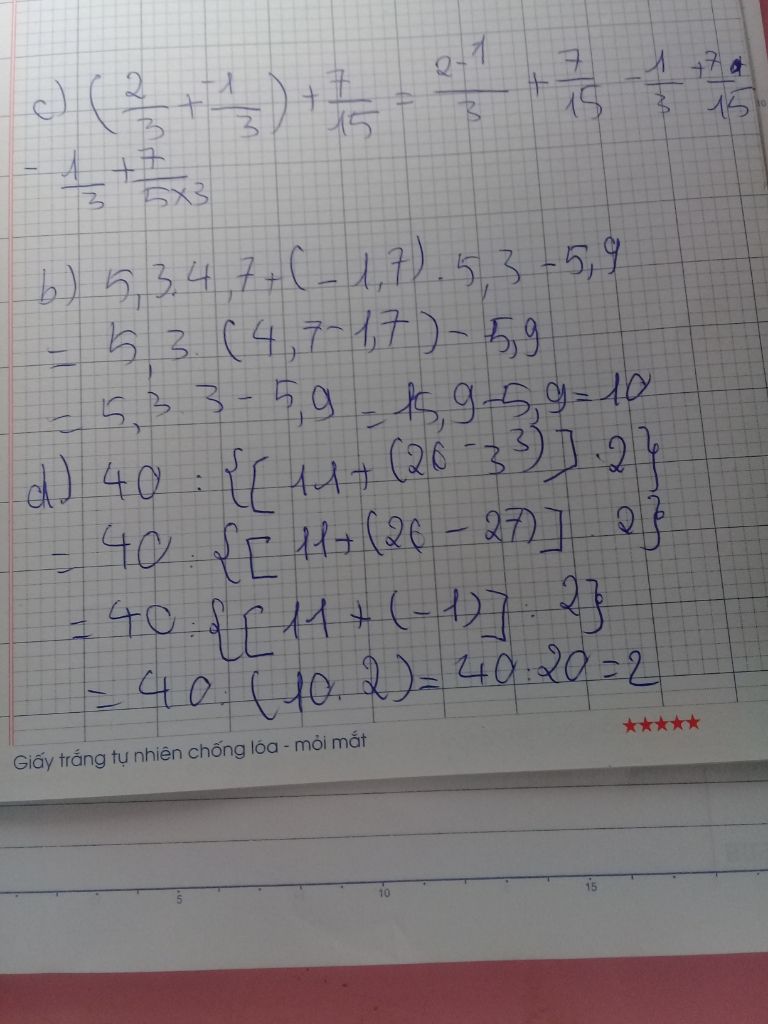 c) (2/3 + -1/3) + 7/15 = 2-1/3 + 7/15 - 1/3 + 7/15
- 1/3 + 7/5×3
b) 5,3.4,7+(-1,7).5,3-5,9
= 5,3.(4,7-1,7)-5,9
= 5,3 3 - 5,9 = 15,9-5,9=10
d) 40 : {[11+(26-3³)].2}
= 40 : {[11+(26-27)].2}
= 40 : {[11+(-1)].2}
= 40 : (10.2) = 40:20=2
Giấy trắng tự nhiên chống lóa - mỏi mắt
5 10 15